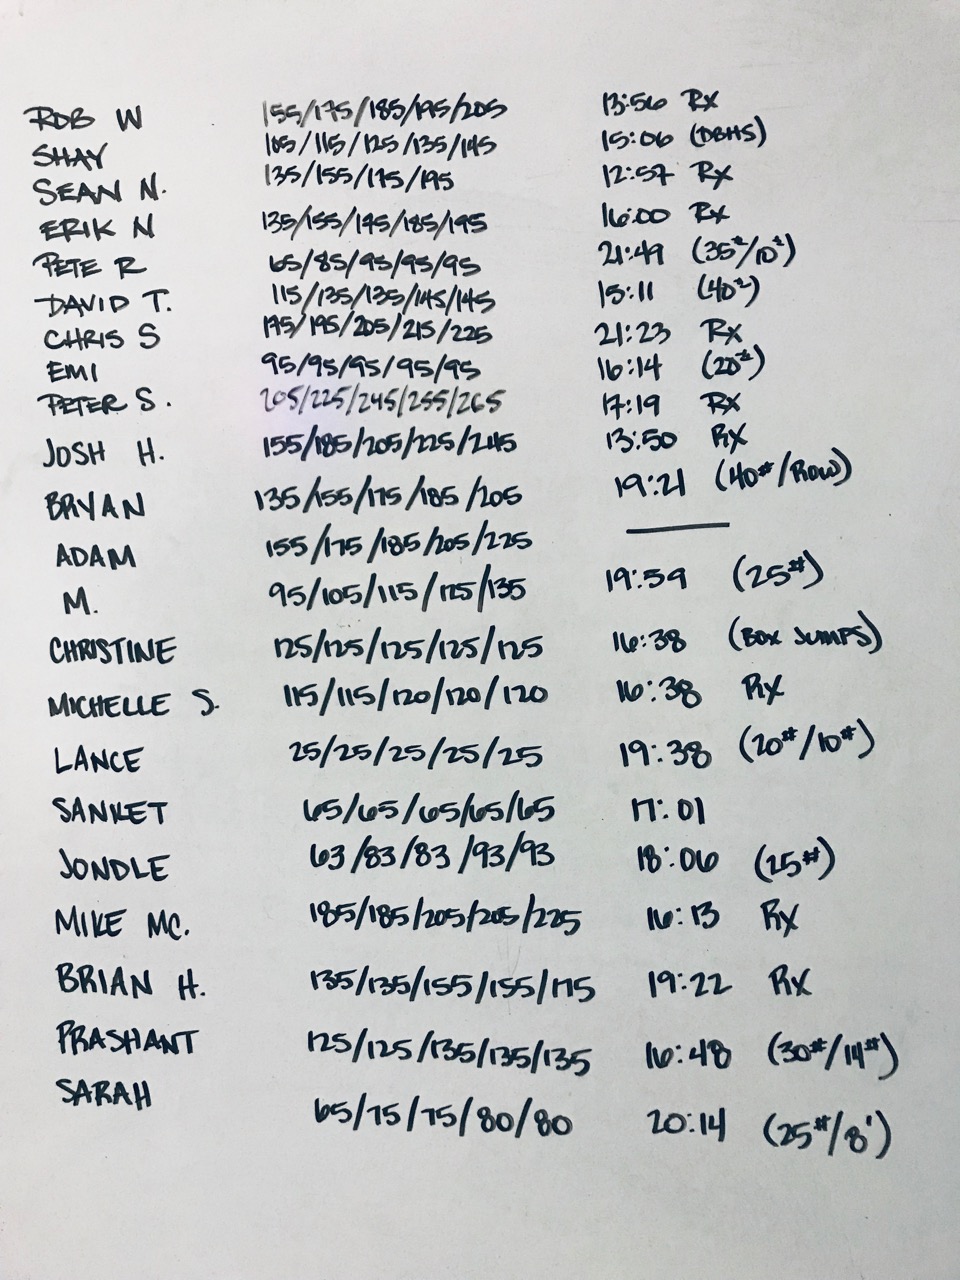 ROB W 155/175/185/195/205 13:56 RX
SHAY 105/115/125/135/145 15:06 (DBHS)
SEAN N. 135/155/175/195 12:57 RX
ERIK N 135/155/175/185/195 16:00 RX
PETE R 65/85/95/95/95 21:49 (35#/10#)
DAVID T. 115/135/135/145/145 15:11 (40#)
CHRIS S 175/195/205/215/225 21:23 RX
EMI 95/95/95/95/95 16:14 (20#)
PETER S. 205/225/245/255/265 17:19 RX
JOSH H. 155/185/205/225/245 13:50 RX
BRYAN 135/155/175/185/205 19:21 (40#/ROW)
ADAM 155/175/185/205/225 —
M. 95/105/115/125/135 19:59 (25#)
CHRISTINE 125/125/125/125/125 16:38 (BOX JUMPS)
MICHELLE S. 115/115/120/120/120 16:38 RX
LANCE 25/25/25/25/25 19:38 (20#/10#)
SANKET 65/65/65/65/65 17:01
JONDLE 63/83/83/93/93 18:06 (25#)
MIKE MC. 185/185/205/205/225 16:13 RX
BRIAN H. 135/135/155/155/175 19:22 RX
PRASHANT 125/125/135/135/135 16:48 (30#/14#)
SARAH 65/75/75/80/80 20:14 (25#/8')